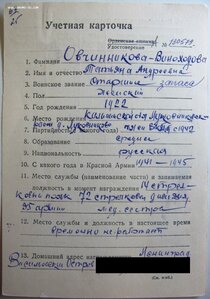 Учетная карточка
Орденская книжка
Удостоверение № 190579
1. Фамилия Овчинникова-Виноходова
2. Имя и отчество Татьяна Андреевна
3. Воинское звание Старшина запаса
4. Пол женский
5. Год рождения 1922
6. Место рождения
7. Партийность (с какого года)
8. Образование среднее
9. Национальность русская
10. С какого года в Красной Армии 1941 — 1945
11. Место службы (наименование части) и занимаемая
должность в момент награждения 14 стрел-
ковый полк 72 стрелковая дивизия,
55 армии мед. сестра
12. Место службы и должность в настоящее время
временно не работает
13. Домашний адрес Ленинград
Васильевский Остров
(См. н/об.)